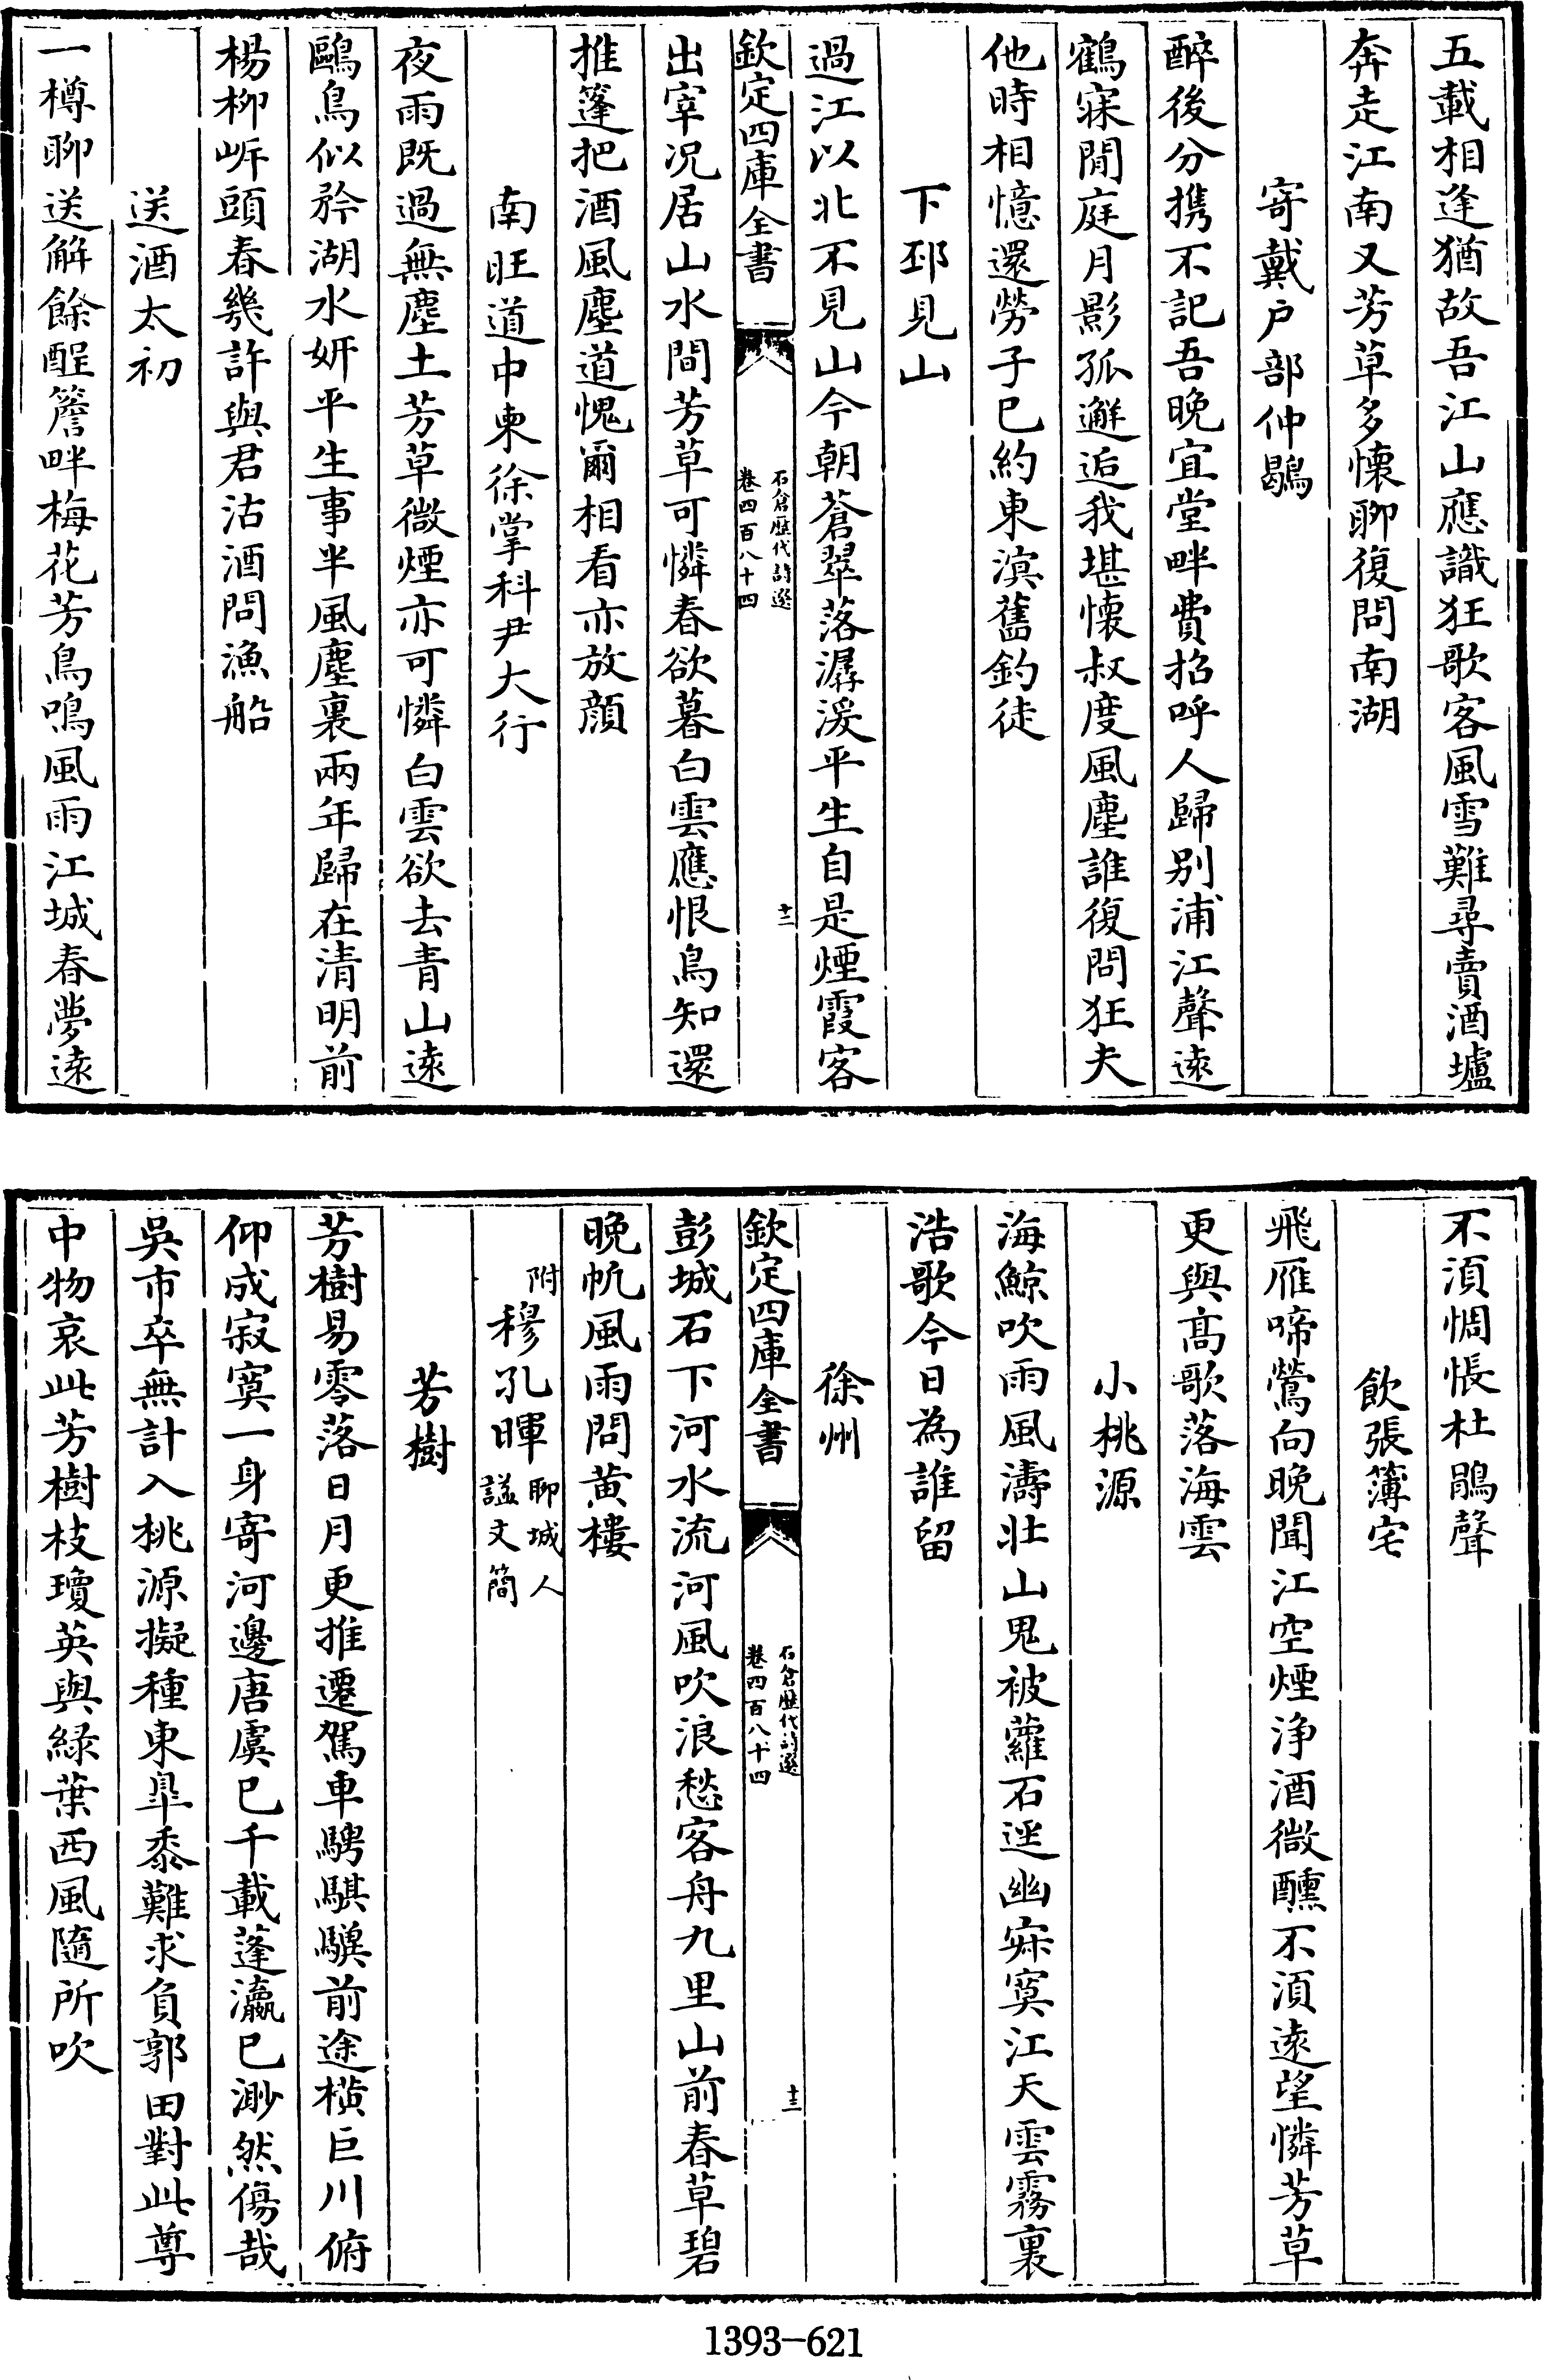 五載相逢猶故吾江山應識狂歌客風雪難尋賣酒壚
奔走江南又芳草多懐聊復問南湖
寄戴戶部仲鶡
醉後分携不記吾晩宜堂畔費招呼人歸别浦江聲逺
鶴寐閒庭月影孤邂逅我堪懐叔度風塵誰復問狂夫
他時相憶還勞子已約東溟舊釣徒
下邳見山
過江以北不見山今朝蒼翠落潺湲平生自是煙霞客
欽定四庫全書
石倉歴代詩選
卷四百八十四
十二
出宰况居山水間芳草可憐春欲暮白雲應恨鳥知還
推篷把酒風塵道愧爾相看亦放顔
南旺道中柬徐掌科尹大行
夜雨既過無塵土芳草微煙亦可憐白雲欲去青山逺
鷗鳥似矜湖水妍平生事半風塵裏兩年歸在清明前
楊柳㟁頭春幾許與君沽酒問漁船
送酒太初
一樽聊送解餘酲簷畔梅花芳鳥鳴風雨江城春夢逺
不湏惆悵杜鵑聲
飲張簿宅
飛雁啼鶯向晩聞江空煙淨酒微醺不湏逺望憐芳草
更與髙歌落海雲
小桃源
海鯨吹雨風濤壯山鬼被蘿石逕幽寂寞江天雲霧裏
浩歌今日為誰留
徐州
欽定四庫全書
石倉歴代詩選
卷四百八十四
十三
彭城石下河水流河風吹浪愁客舟九里山前春草碧
晩帆風雨問黄樓
附
穆孔暉
聊城人
諡文簡
芳樹
芳樹易零落日月更推遷駕車騁騏驥前途横巨川俯
仰成寂寞一身寄河邊唐虞已千載蓬瀛已渺然傷哉
吳市卒無計入桃源擬種東臯黍難求負郭田對此尊
中物哀此芳樹枝瓊英與緑葉西風隨所吹
1393-621